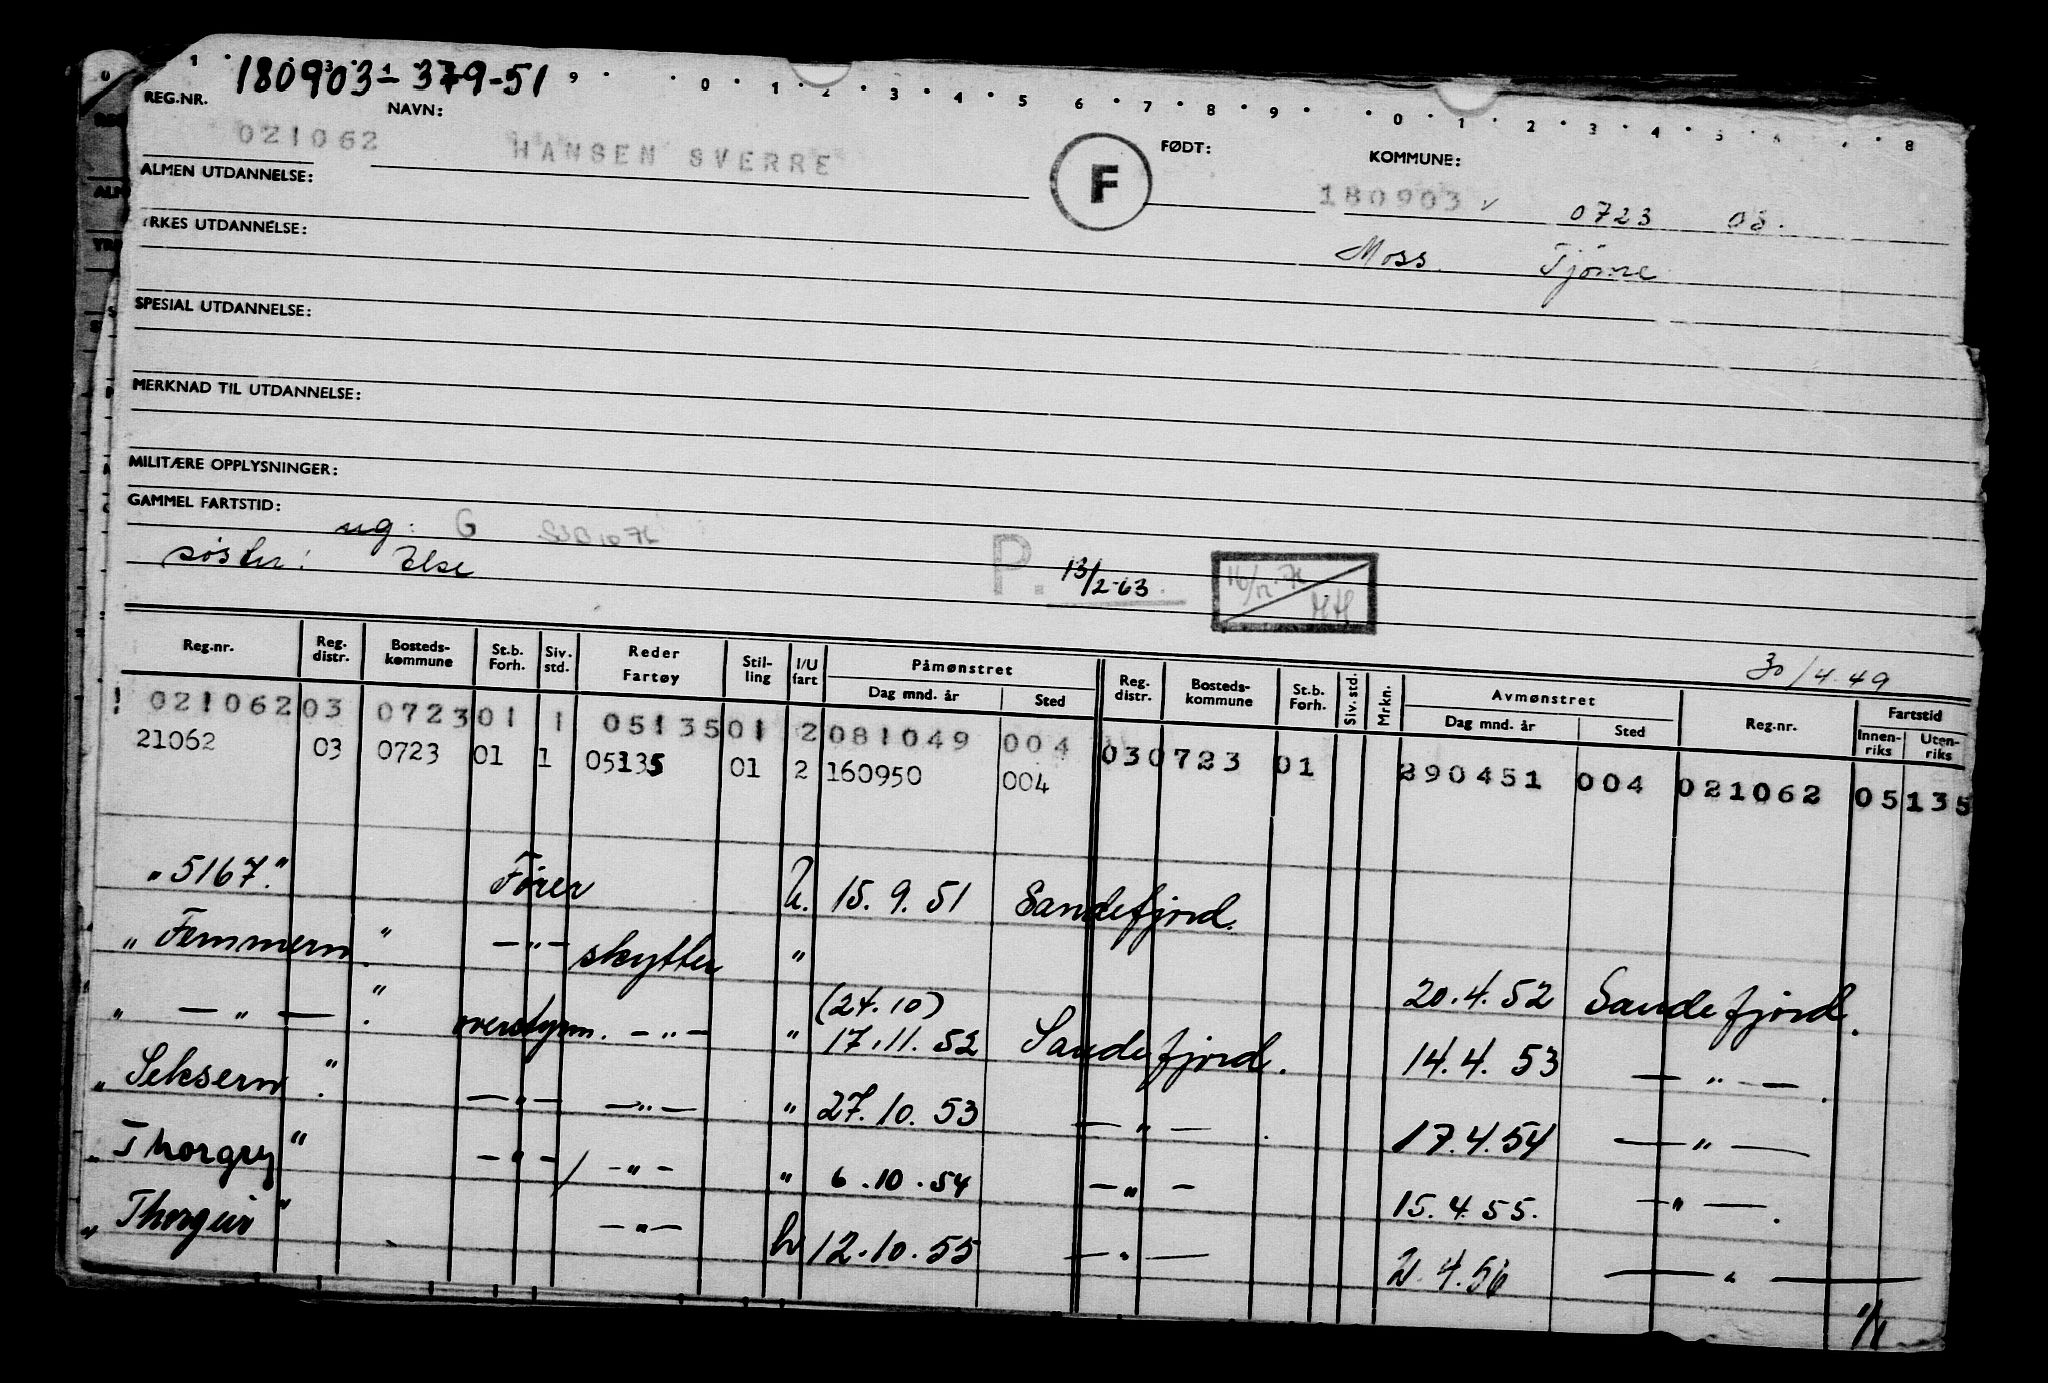 180903-379-51
REG.NR. NAVN: FØDT: KOMMUNE:
021062 HANSEN SVERRE F 180903 0723 08.
ALMEN UTDANNELSE:
Moss. Tjøme
YRKES UTDANNELSE:
SPESIAL UTDANNELSE:
MERKNAD TIL UTDANNELSE:
MILITÆRE OPPLYSNINGER:
GAMMEL FARTSTID:
ug: G
søster: Else P. 13/2-63.
30/4 49
Reg.nr. Reg. distr. Bosteds- kommune St.b. Forh. Siv. std. Reder Fartøy Stil- ling I/U fart Påmønstret Dag mnd. år Sted Reg. distr. Bosteds- kommune St.b. Forh. Siv. std. Mrkn. Avmønstret Dag mnd. år Sted Reg.nr. Fartstid Innen- riks Uten- riks
021062 03 0723 01 1 05135 01 2 081049 004 03 0723 01 290451 004 021062 05135
21062 03 0723 01 1 05135 01 2 160950 004
"5167." Fører U. 15.9.51 Sandefjord.
" Femmern " — " — skytter " 20.4.52 Sandefjord.
" — " — " overstyrm. — " — " (24.10) 17.11.52 Sandefjord. 14.4.53 — " — .
" Seksern " — " — — " — " 27.10.53 — " — . 17.4.54 — " —
" Thorgry " — " — / — " — " 6.10.54 — " — 15.4.55. — " — .
" Thorgeir " — " — 12.10.55 — " — 21.4.56 — " —